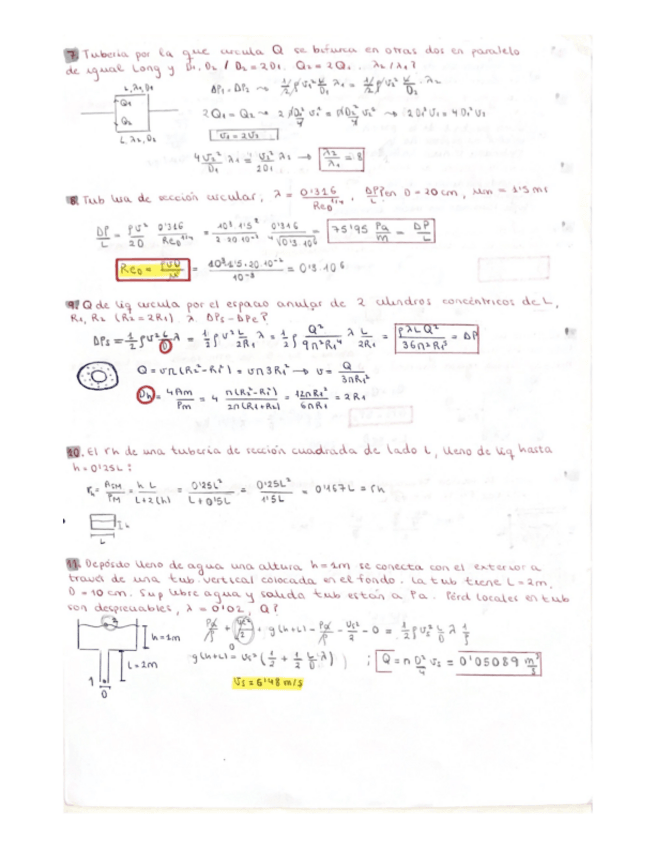 7. Tubería por la que circula Q se bifurca en otras dos en paralelo
de igual Long y D1, D2 / D2 = 2D1. Q2 = 2Q1. λ2/λ1?
L, λ1, D1
Q1
Q2
L, λ2, D2
ΔP1 = ΔP2 → 1/2 ρ v1² L/D1 λ1 = 1/2 ρ v2² L/D2 λ2
2Q1 = Q2 →
v1 = 2v2
4v2²/D1 λ1 = v2²/2D1 λ2 → λ2/λ1 = 8
8. Tub lisa de sección circular, λ = 0'316/Re_D^1/4, ΔP/L en D = 20 cm, um = 1'5 m/s
ΔP/L = ρv²/2D 0'316/Re_D^1/4 = 10³·1'5²/2·20·10⁻² 0'316/⁴√0'3·10⁶ = 75'95 Pa/m = ΔP/L
Re_D = ρvD/μ = 10³·1'5·20·10⁻²/10⁻³ = 0'3·10⁶
9. Q de liq circula por el espacio anular de 2 cilindros concéntricos de L,
R1, R2 (R2 = 2R1). λ. ΔPs - ΔPe?
ΔPs = 1/2 ρv² L/D λ = 1/2 ρv² L/2R1 λ = 1/2 ρ Q²/9π²R1⁴ λ L/2R1 = ρλLQ²/36π²R1⁵ = ΔP
Q = vπ(R2²-R1²) = vπ3R1² → v = Q/3πR1²
Dh = 4Am/Pm = 4 π(R2²-R1²)/2π(R1+R2) = 12πR1²/6πR1 = 2R1
10. El rh de una tubería de sección cuadrada de lado L, lleno de liq hasta
h = 0'25L:
rh = Am/Pm = h L/L+2(h) = 0'25L²/L+0'5L = 0'25L²/1'5L = 0'167L = rh
h
L
11. Depósito lleno de agua una altura h = 1m se conecta con el exterior a
través de una tub. vertical colocada en el fondo. La tub tiene L = 2m,
D = 10 cm. Sup libre agua y salida tub están a Pa. Pérd locales en tub
son despreciables, λ = 0'02, Q?
h = 1m
L = 2m
1
D
0
g(h+L) = vs² (1/2 + 1/2 L/D λ) ; Q = π D²/4 vs = 0'05089 m³/s
vs = 6'48 m/s